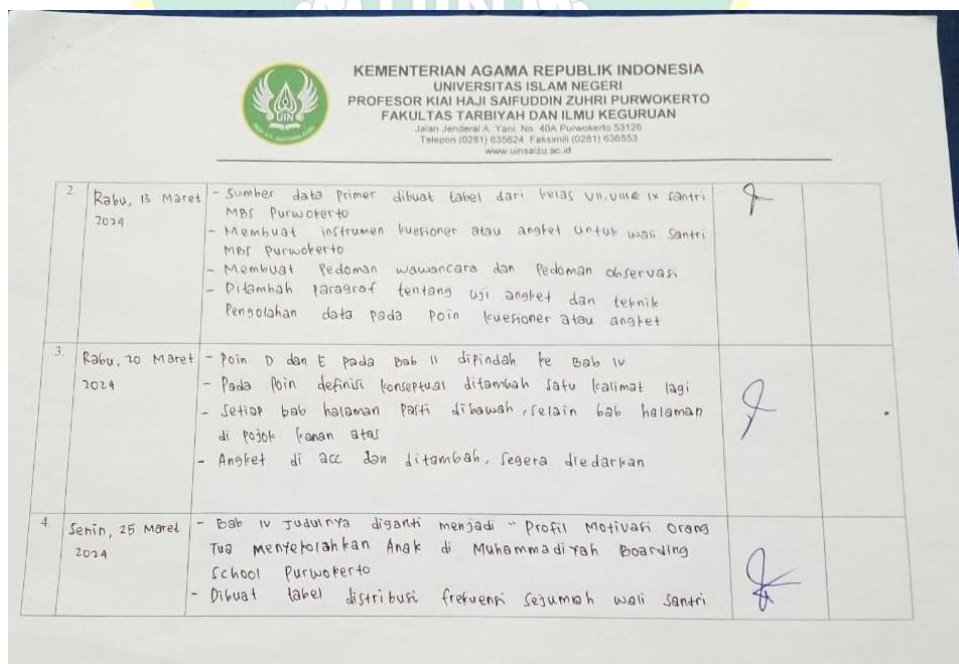 KEMENTERIAN AGAMA REPUBLIK INDONESIA
UNIVERSITAS ISLAM NEGERI
PROFESOR KIAI HAJI SAIFUDDIN ZUHRI PURWOKERTO
FAKULTAS TARBIYAH DAN ILMU KEGURUAN
Jalan Jenderal A. Yani, No. 40A Purwokerto 53126
Telepon (0281) 635624 Faksimili (0281) 636553
www.uinsaizu.ac.id
UIN
2. Rabu, 13 Maret 2024
- Sumber data Primer dibuat tabel dari kelas VII, VIII & IX santri
MBS Purwokerto
- Membuat instrumen kuesioner atau angket untuk wali santri
MBS Purwokerto
- Membuat Pedoman wawancara dan Pedoman observasi
- Ditambah paragraf tentang uji angket dan teknik
Pengolahan data pada poin kuesioner atau angket
3. Rabu, 20 Maret 2024
- Poin D dan E pada Bab II dipindah ke Bab IV
- Pada Poin definisi konseptual ditambah satu kalimat lagi
- Setiap bab halaman pasti dibawah, selain bab halaman
di pojok kanan atas
- Angket di acc dan ditambah, segera diedarkan
4. Senin, 25 Maret 2024
- Bab IV Judulnya diganti menjadi " Profil Motivasi Orang
Tua Menyekolahkan Anak di Muhammadiyah Boarding
School Purwokerto
- Dibuat tabel distribusi frekuensi sejumlah wali santri